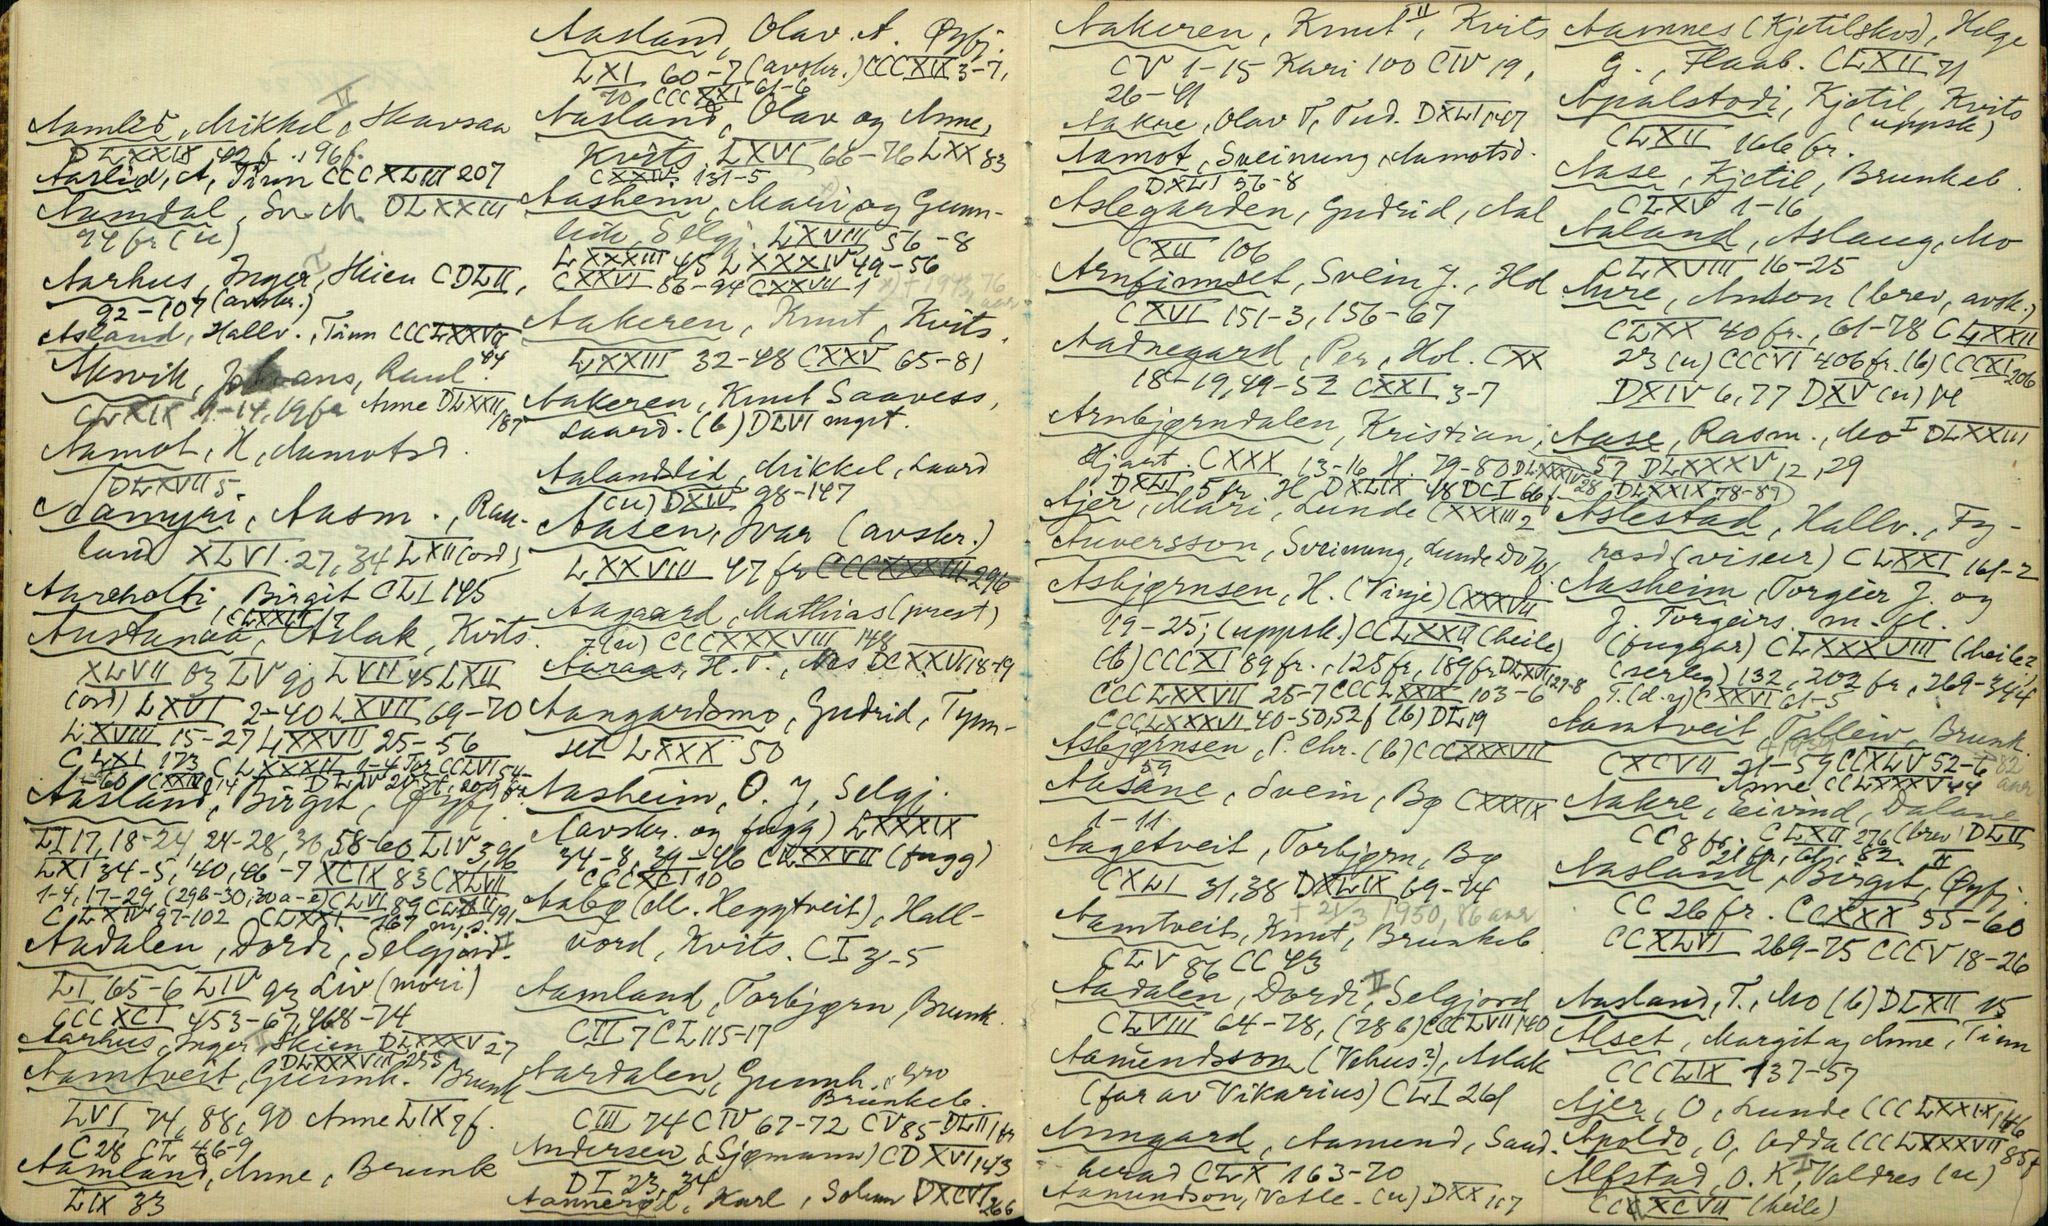 Aamlid, Mikkel, Skavsaa
DLXXIX 42 f., 96 f.
Aarlid, A, Tinn CCCXLIII 207
Aamdal, Sv. M. DLXXIII
94 fr (u)
Aarhus, Inger, Skien CDLII,
92-107 (avskr.)
Asland, Hallv., Tinn CCCLXXVII
44
Akervik, Johans, Raul
CLXIX 9-14, 19 fr Anne DLXXII
187
Aamot, H, Aamotsd.
DLXVII 5
Aamyri, Aasm., Rau-
land XLVI 27, 34 LXII (ord)
Aareholti, Birgit CLI 145
Austanaa, Aslak, Kvits.
XLVII og LV 90 LVII 45 LXII
(ord) LXVI 2-40 LXVII 69-70
LXVIII 15-27 LXXVII 25-56
CLXI 173 CLXXXII 1-4 Tor CCLVI 54-
-60 CXXII 14
Aasland, Birgit, Øyfj.
LI 17, 18-24, 24-28, 30, 58-60 LIV 3, 96
LXI 34-5, 40, 46-7 XCIX 83 CXLVII
1-4, 17-29, (29b-30, 30a-e) CLVI 89 CLXII
CLXIV 97-102 CLXXI 167
Aadalen, Dordi, Selgjord. II
LI 65-6 LIV 93 Liv (mori)
CCCXCI 453-67, 468-74
Aarhus, Inger, Skien DLXXXV 27
DLXXXVII 255
Aamtveit, Gunnh. Brunk
LVI 74, 88, 90 Anne LIX 7 f.
C 28 CL 46-9
Aamland, Anne, Brunk
LIX 33
Aasland, Olav A. Øyfj.
LXI 60-7 (avskr.) CCCXII 3-7,
70 CCCXXI 61-6
Aasland, Olav og Anne,
Kvits. LXVI 66-76 LXX 83
CXXIV 131-5
Aasheim, Mari og Gunn-
leik, Selgj. LXVIII 56-8
LXXXIII 45 LXXXIV 49-56
CXXVI 86-94 CXXVII 1 x) + 1943, 76
aar
Aakeren, Knut, Kvits.
LXXIII 32-48 CXXV 65-81
Aakeren, Knut Saavess,
Laard. (b) DLVI mgt.
Aalandslid, Mikkel, Laard
(u) DXIV 98-147
Aasen, Ivar (avskr.)
LXXVIII 47 fr CCCXXXVIII 296
Aagaard, Mathias (prest)
7 (u) CCCXXXVIII 148
Aaraas, H. T., Aas DCXXVI 18-19
Aangardsmo, Gudrid, Tyn-
set LXXX 50
Aasheim, O. J, Selgj.
(avskr. og fugg) LXXXIX
34-8, 39-46 CLXXVII (fugg)
CCCXCI 10
Aabø (M. Heggtveit), Hall-
vord, Kvits. CI 3-5
Aamland, Torbjørn, Brunk.
CII 7 CL 115-17
Aardalen, Gunnh. Gro
Brunkeb.
CIII 74 CIV 67-72 CV 85 DLII 1 fr
Andersen (Sjømann) CDXVI 143
DI 23, 34
Aannerød, Karl, Solum DXCVI 266
Aakeren, Knut II, Kvits
CV 1-15 Kari 100 CIV 19,
26-41
Aakre, Olav T, Tud. DXLI 147
Aamot, Sveinung, Aamotsd.
DXLI 36-8
Aslegarden, Gudrid, Aal
CXII 106
Arnfinnset, Svein J., Hol
CXVI 151-3, 156-67
Aadnegard, Per, Hol. CXX
18-19, 49-52 CXXI 3-7
Arnbjørndalen, Kristian,
Hjart. CXXX 13-16 H. 79-80 DLXXXIV 28
DXLI 5 fr. H DXLIX 48 DCI 66 f.
Ajer, Mari, Lunde CXXXIII 2
Auversson, Sveinung, Lunde
Asbjørnsen, H. (Vinje) CXXXVII
19-25; (uppsk.) CCLXXII (heile)
(b) CCCXI 89 fr., 125 fr, 189 fr DLXVI 127-8
CCCLXXVII 25-7 CCCLXXIX 103-6
CCCLXXXVI 40-50, 52 f (b) DL 19
Asbjørnsen, P. Chr. (b) CCCXXXVII
59
Aasane, Svein, Bø CXXXIX
1-11
Aagetveit, Torbjørn, Bø
CXLI 31, 38 DXLIX 69-74
+ 21/3 1950, 86 aar
Aamtveit, Knut, Brunkeb
CLV 86 CC 43
Aadalen, Dordi II, Selgjord
CLVIII 64-78, (78 b) CCCLVII 140
Aamundsson (Vehus?), Aslak
(far av Vikarius) CLI 261
Anngard, Aamund, Saud-
herad CLX 163-70
Aamundson, Vetle (u) DXX 117
Aamnes (Kjetilskos), Helge
G., Flaab. CLXII 71
Apalstodi, Kjetil, Kvits
(uppsk)
CLXII 166 fr.
Aase, Kjetil, Brunkeb.
CLXV 1-16
Aaland, Aslaug, Mo
CLXVIII 16-25
Aure, Anton (brev, avsk.)
CLXX 40 fr., 61-78 CLXXII
23 (u) CCCVI 406 fr. (b) CCCXI 206
DXIV 6, 77 DXV (u) 14
Aase, Rasm., Mo I DLXXIII
57 DLXXXV 12, 29
DLXXIX 78-87
Aslestad, Hallv., Fy-
resd (viser) CLXXI 161-2
Aasheim, Torgeir J. og
J. Torgeirs. m. fl.
(fuggar) CLXXXVIII (heile?)
(serleg) 132, 202 fr, 269-344
T. (d. y) CXXVI 61-5
Aamtveit Talleiv, Brunk.
+ 1939 82 aar
CXCVII 21-59 CCXLV 52-6
Anne CCLXXXV 44
Aakre, Eivind, Dalane
CC 8 fr, CLXII 276 (brev) DLII
21 fr, 61, 82.
Aasland, Birgit II, Øyfj.
CC 26 fr. CCXXX 55-60
CCXLVI 269-75 CCCV 18-26
Aasland, T., Mo (b) DLXII 15
Alset, Margit og Anne, Tinn
CCCLIX 137-57
Ajer, O, Lunde CCCLXXIX 146
Apoldo, O, Odda CCCLXXXVII 85 f
Alfstad, O. K, Valdres (u)
CCCXCVII (heile)